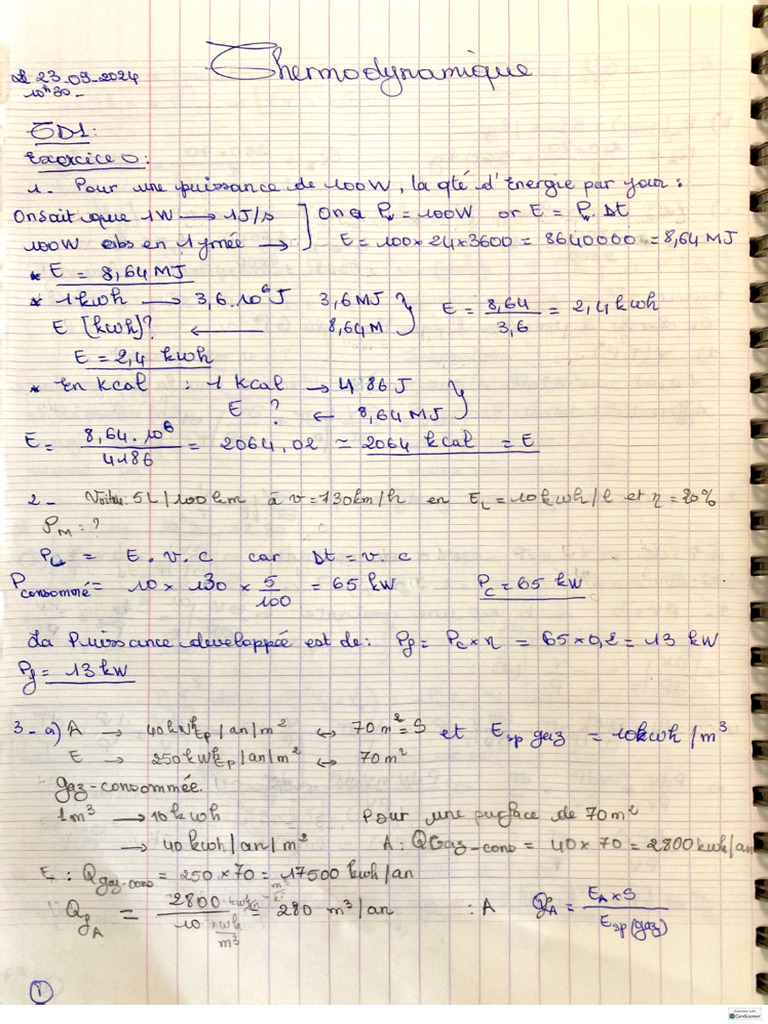 Thermodynamique
Le 23.09.2024
10h30-
TD1:
Exercice 0:
1. Pour une puissance de 100W, la qté d'Energie par jour:
On sait que 1W → 1J/s ] On a Pu = 100W or E = Pu. Δt
100W abs en 1 jrnée → E = 100 × 24 × 3600 = 8640000 = 8,64 MJ
* E = 8,64 MJ
* 1 kwh → 3,6.10⁶ J 3,6 MJ } E = 8,64/3,6 = 2,4 kwh
E [kwh]? ← 8,64M
E = 2,4 kwh
* En kcal : 1 kcal → 4186J }
E ? ← 8,64 MJ
E = 8,64.10⁶/4186 = 2064,02 ≃ 2064 kcal = E
2- Voiture: 5L/100km à v=130km/h en EL = 10kwh/l et η = 20%
PM = ?
Pc = E . v . c car Δt = v . c
Pconsommé = 10 × 130 × 5/100 = 65 kW Pc = 65 kW
La Puissance developpée est de: Pf = Pc × η = 65 × 0,2 = 13 kW
Pf = 13 kW
3- a) A → 40kWhEp/an/m² ↔ 70m² = S et Esp gaz = 10kwh/m³
E → 250kWhEp/an/m² ↔ 70m²
gaz-consommée.
1m³ → 10kwh Pour une surface de 70m²
→ 40kwh/an/m² A: QGaz-cons = 40 × 70 = 2800 kwh/an
E : Qgaz-cons = 250 × 70 = 17500 kwh/an
QgA = 2800 kwh/an / 10 kwh/m³ = 280 m³/an : A QgA = EA × S / Esp(gaz)
1
Scanned with
CamScanner